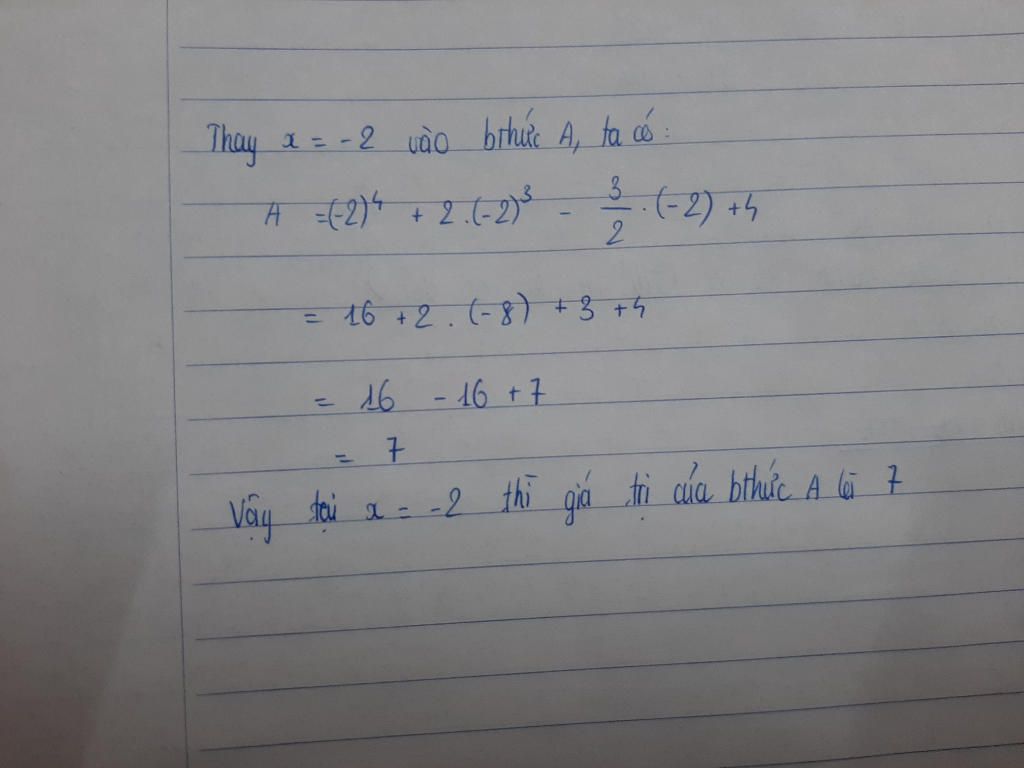 Thay x = -2 vào bthức A, ta có:
A = (-2)⁴ + 2.(-2)³ - 3/2 . (-2) + 4
= 16 + 2 . (-8) + 3 + 4
= 16 - 16 + 7
= 7
Vậy tại x = -2 thì giá trị của bthức A là 7